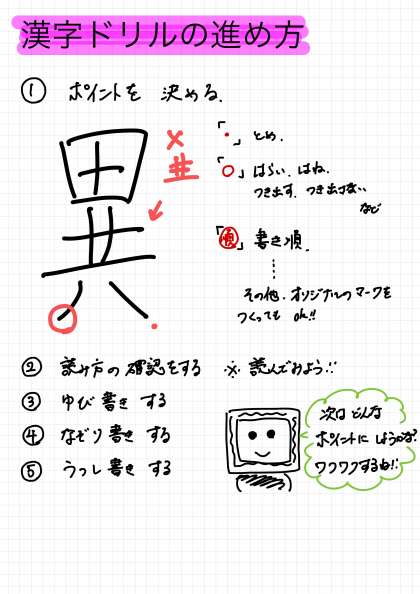 漢字ドリルの進め方
① ポイントを 決める.
異
×
「・」とめ.
「○」はらい. はね.
つき出す. つき出さない
など
「順」書き順.
その他. オリジナルのマークを
つくっても ok!!
② 読み方の確認をする ※ 読んでみよう!!
③ ゆび書き する
④ なぞり書き する
⑤ うつし書き する
次は どんな
ポイントに しようかな?
ワクワクするね!!